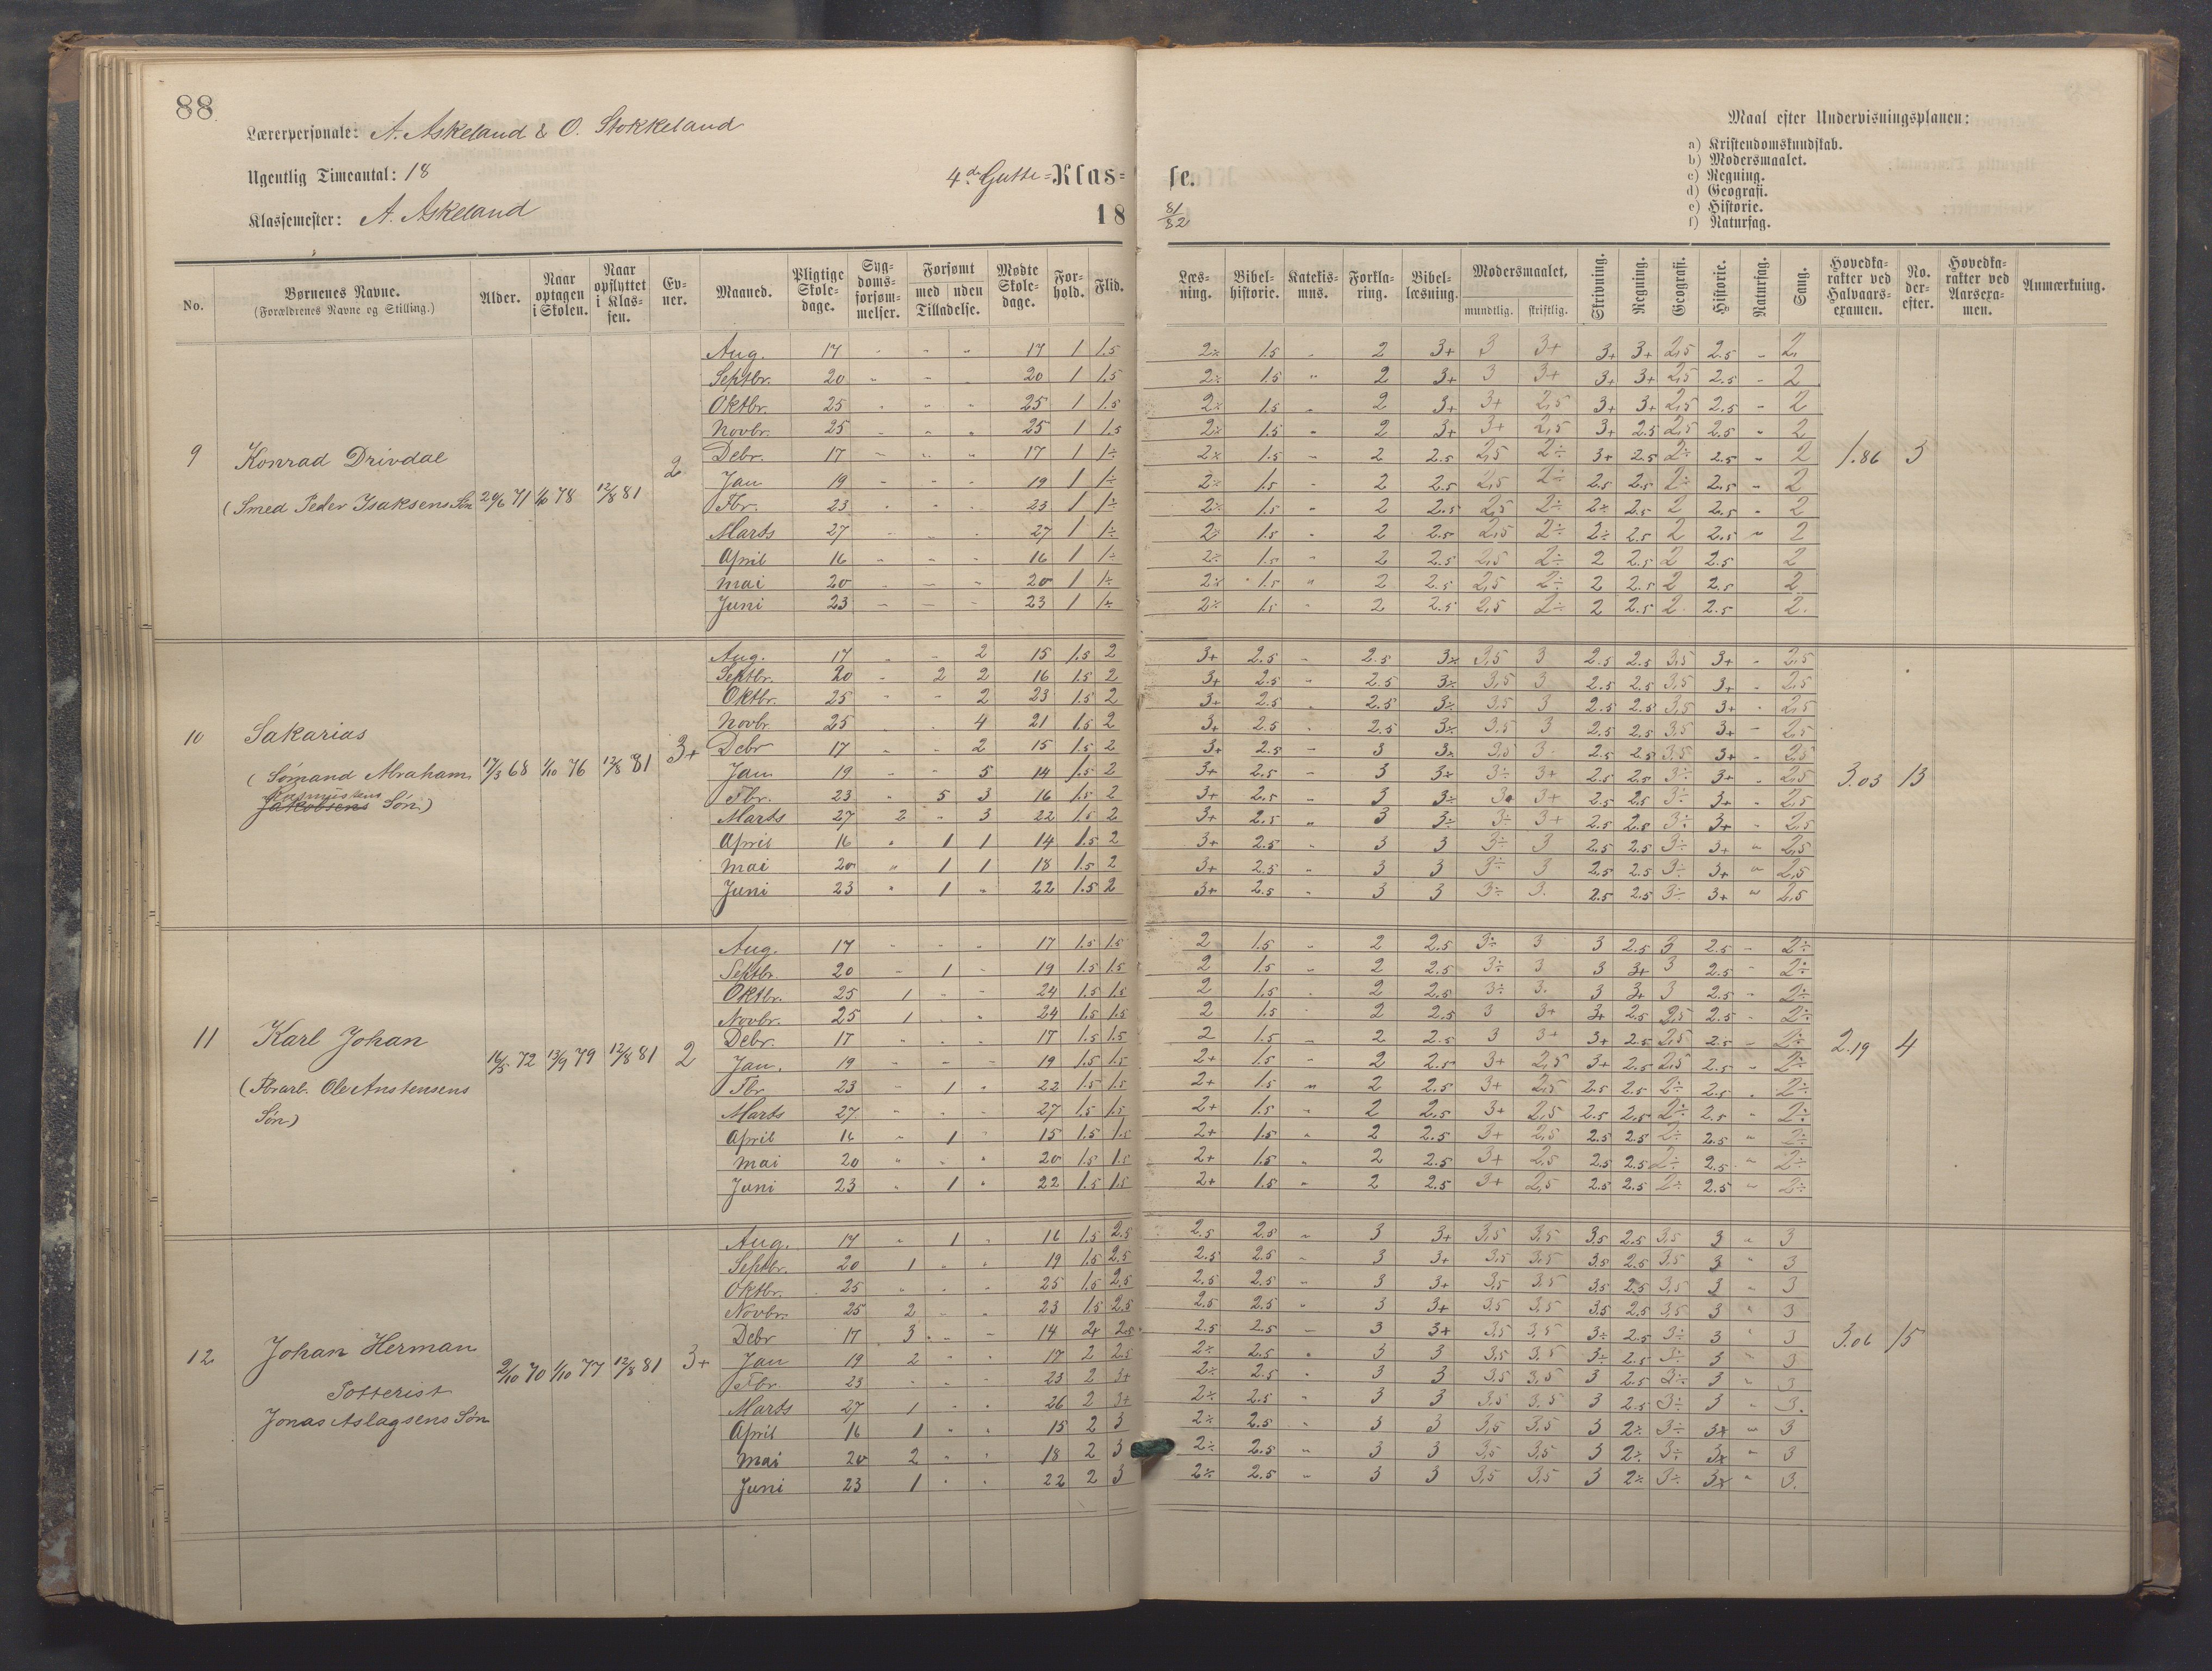 88
Lærerpersonale: A. Askeland & O. Stokkeland
Ugentlig Timeantal: 18
Klassemester: A. Askeland
4de Gutte-Klasse.
18 81/82
Maal efter Undervisningsplanen:
a) Kristendomskundskab.
b) Modersmaalet.
c) Regning.
d) Geografi.
e) Historie.
f) Naturfag.
No. | Børnenes Navne. (Forældrenes Navne og Stilling.) | Alder. | Naar optagen i Skolen. | Naar opflyttet i Klassen. | Evner. | Maaned. | Pligtige Skoledage. | Sygdomsforsømmelser. | Forsømt med Tilladelse. | Forsømt uden Tilladelse. | Mødte Skoledage. | Forhold. | Flid. | Læsning. | Bibelhistorie. | Katekismus. | Forklaring. | Bibellæsning. | Modersmaalet, mundtlig. | skriftlig. | Skrivning. | Regning. | Geografi. | Historie. | Naturfag. | Sang. | Hovedkarakter ved Halvaarsexamen. | No. derefter. | Hovedkarakter ved Aarsexamen. | Anmærkning.
9 Konrad Drivdal
(Smed Peder Isaksens Søn
71 78 12/8 81 2 1.86 3
Aug. 17 " " " 17 1 1.5 2÷ 1.5 " 2 3+ 3 3+ 3+ 3+ 2,5 2.5 " 2
Septbr. 20 " " " 20 1 1.5 2÷ 1.5 " 2 3+ 3 3+ 3+ 3+ 2,5 2.5 " 2
Oktbr. 25 " " " 25 1 1.5 2÷ 1.5 " 2 3+ 3+ 2,5 3+ 3+ 2,5 2.5 " 2
Novbr. 25 " " " 25 1 1.5 2÷ 1.5 " 2 3+ 3+ 2,5 3+ 2.5 2,5 2.5 " 2
Debr. 17 " " " 17 1 1÷ 2÷ 1.5 " 2 2.5 2,5 2÷ 3+ 2.5 2÷ 2.5 " 2
Jan 19 " " " 19 1 1÷ 2÷ 1.5 " 2 2.5 2,5 2÷ 2.5 2.5 2÷ 2.5 " 2
Fbr. 23 " " " 23 1 1÷ 2÷ 1.5 " 2 2.5 2,5 2÷ 2÷ 2.5 2 2.5 " 2
Marts 27 " " " 27 1 1÷ 2÷ 1.5 " 2 2.5 2,5 2÷ 2÷ 2.5 2 2.5 " 2
April 16 " " " 16 1 1÷ 2÷ 1.5 " 2 2.5 2,5 2÷ 2 2.5 2 2.5 2
Mai 20 " " " 20 1 1÷ 2÷ 1.5 " 2 2.5 2,5 2÷ 2 2.5 2 2.5 2
Juni 23 " " " 23 1 1÷ 2÷ 1.5 " 2 2.5 2,5 2÷ 2 2.5 2 2.5 2.
10 Sakarias
(Sømand Abraham
Rasmussens
Jakobsens Søn.)
17/3 68 1/10 76 12/8 81 3+ 3.03 13
Aug. 17 " " 2 15 1.5 2 3+ 2.5 " 2.5 3÷ 3,5 3 2.5 2.5 3,5 3+ " 2,5
Septbr. 20 " 2 2 16 1.5 2 3+ 2.5 " 2.5 3÷ 3,5 3 2.5 2.5 3,5 3+ " 2,5
Oktbr. 25 " " 2 23 1.5 2 3+ 2.5 " 2.5 3÷ 3,5 3 2.5 2.5 3,5 3+ " 2,5
Novbr. 25 " " 4 21 1.5 2 3+ 2.5 " 2.5 3÷ 3,5 3 2.5 2.5 3,5 3+ " 2,5
Debr 17 " " 2 15 1.5 2 3+ 2.5 " 3 3÷ 3,5 3 2.5 2.5 3,5 3+ " 2,5
Jan 19 " " 5 14 1.5 2 3+ 2.5 " 3 3÷ 3÷ 3+ 2.5 2.5 3÷ 3+ " 2,5
Fbr. 23 " 5 3 16 1.5 2 3+ 2.5 " 3 3÷ 3÷ 3+ 2.5 2.5 3÷ 3+ " 2,5
Marts 27 2 " 3 22 1.5 2 3+ 2.5 " 3 3÷ 3÷ 3+ 2.5 2.5 3÷ 3+ " 2,5
April 16 " 1 1 14 1.5 2 3+ 2.5 " 3 3 3÷ 3 2.5 2.5 3÷ 3+ " 2,5
Mai 20 " 1 1 18 1.5 2 3+ 2.5 " 3 3 3÷ 3 2.5 2.5 3÷ 3+ " 2,5
Juni 23 " 1 " 22 1.5 2 3+ 2.5 " 3 3 3÷ 3. 2.5 2.5 3÷ 3+ " 2,5
11 Karl Johan
(Fbrarb. Ole Anstensens
Søn)
16/5 72 13/9 79 12/8 81 2 2.19 4
Aug. 17 " " " 17 1.5 1.5 2 1.5 " 2 2.5 3÷ 3 3 2.5 3 2.5 " 2÷
Septbr. 20 " 1 " 19 1.5 1.5 2 1.5 " 2 2.5 3÷ 3 3 3+ 3 2.5 " 2÷
Oktbr. 25 1 " " 24 1.5 1.5 2 1.5 " 2 2.5 3÷ 3. 3 3+ 3 2.5 " 2÷
Novbr. 25 1 " " 24 1.5 1.5 2 1.5 " 2 2.5 3 3+ 3+ 2.5 2,5 2.5 " 2÷
Debr. 17 " " " 17 1.5 1.5 2 1.5 " 2 2.5 3 3+ 3+ 2.5 2,5 2.5 " 2÷
Jan. 19 " " " 19 1.5 1.5 2+ 1.5 " 2 2.5 3+ 2,5 3+ 2.5 2,5 2.5 " 2÷
Fbr 23 " 1 " 22 1.5 1.5 2+ 1.5 " 2 2.5 3+ 2,5 2.5 2.5 2÷ 2.5 " 2÷
Marts 27 " " " 27 1.5 1.5 2+ 1.5 " 2 2.5 3+ 2,5 2.5 2.5 2÷ 2.5 " 2÷
April 16 " 1 " 15 1.5 1.5 2+ 1.5 " 2 2.5 3+ 2,5 2.5 2.5 2÷ 2.5 " 2÷
Mai 20 " " " 20 1.5 1.5 2+ 1.5 " 2 2.5 3+ 2,5 2.5 2.5 2÷ 2.5 " 2÷
Juni 23 " 1 " 22 1.5 1.5 2+ 1.5 " 2 2.5 3+ 2,5 2.5 2.5 2÷ 2.5 " 2÷
12 Johan Herman
Potterist
Jonas Aslagsens Søn
2/10 70 1/10 77 12/8 81 3+ 3.06 15
Aug. 17 " 1 " 16 1.5 2.5 2.5 2.5 " 3 3+ 3,5 3,5 3.5 2.5 3,5 3 " 3
Septbr. 20 1 " " 19 1.5 2.5 2.5 2.5 " 3 3+ 3,5 3,5 3.5 2.5 3,5 3 " 3
Oktbr. 25 " " " 25 1.5 2.5 2.5 2.5 " 3 3+ 3,5 3,5 3.5 2.5 3,5 3 " 3
Novbr. 25 2 " " 23 1.5 2.5 2.5 2.5 " 3 3+ 3,5 3,5 3.5 2.5 3,5 3 " 3
Debr 17 3 " " 14 2+ 2.5 2.5 2.5 " 3 3+ 3,5 3,5 3÷ 2.5 3÷ 3 " 3
Jan 19 2 " " 17 2 2.5 2÷ 2.5 " 3 3 3,5 3,5 3÷ 2.5 3÷ 3 " 3
Fbr. 23 " " " 23 2 3+ 2÷ 2.5 " 3 3 3,5 3,5 3 2.5 3÷ 3 " 3
Marts 27 1 " " 26 2 3+ 2÷ 2.5 " 3 3 3,5 3,5 3 2.5 3÷ 3 " 3.
April 16 1 " " 15 2 3 2÷ 2.5 " 3 3 3,5 3,5 3 2÷ 3÷ 3÷ " 3
Mai 20 2 " " 18 2 3 2÷ 2.5 " 3 3 3,5 3,5 3 2÷ 3÷ 3÷ " 3
Juni 23 1 " " 22 2 3 2÷ 2.5 " 3 3 3,5 3,5 3 2÷ 3÷ 3÷ " 3.